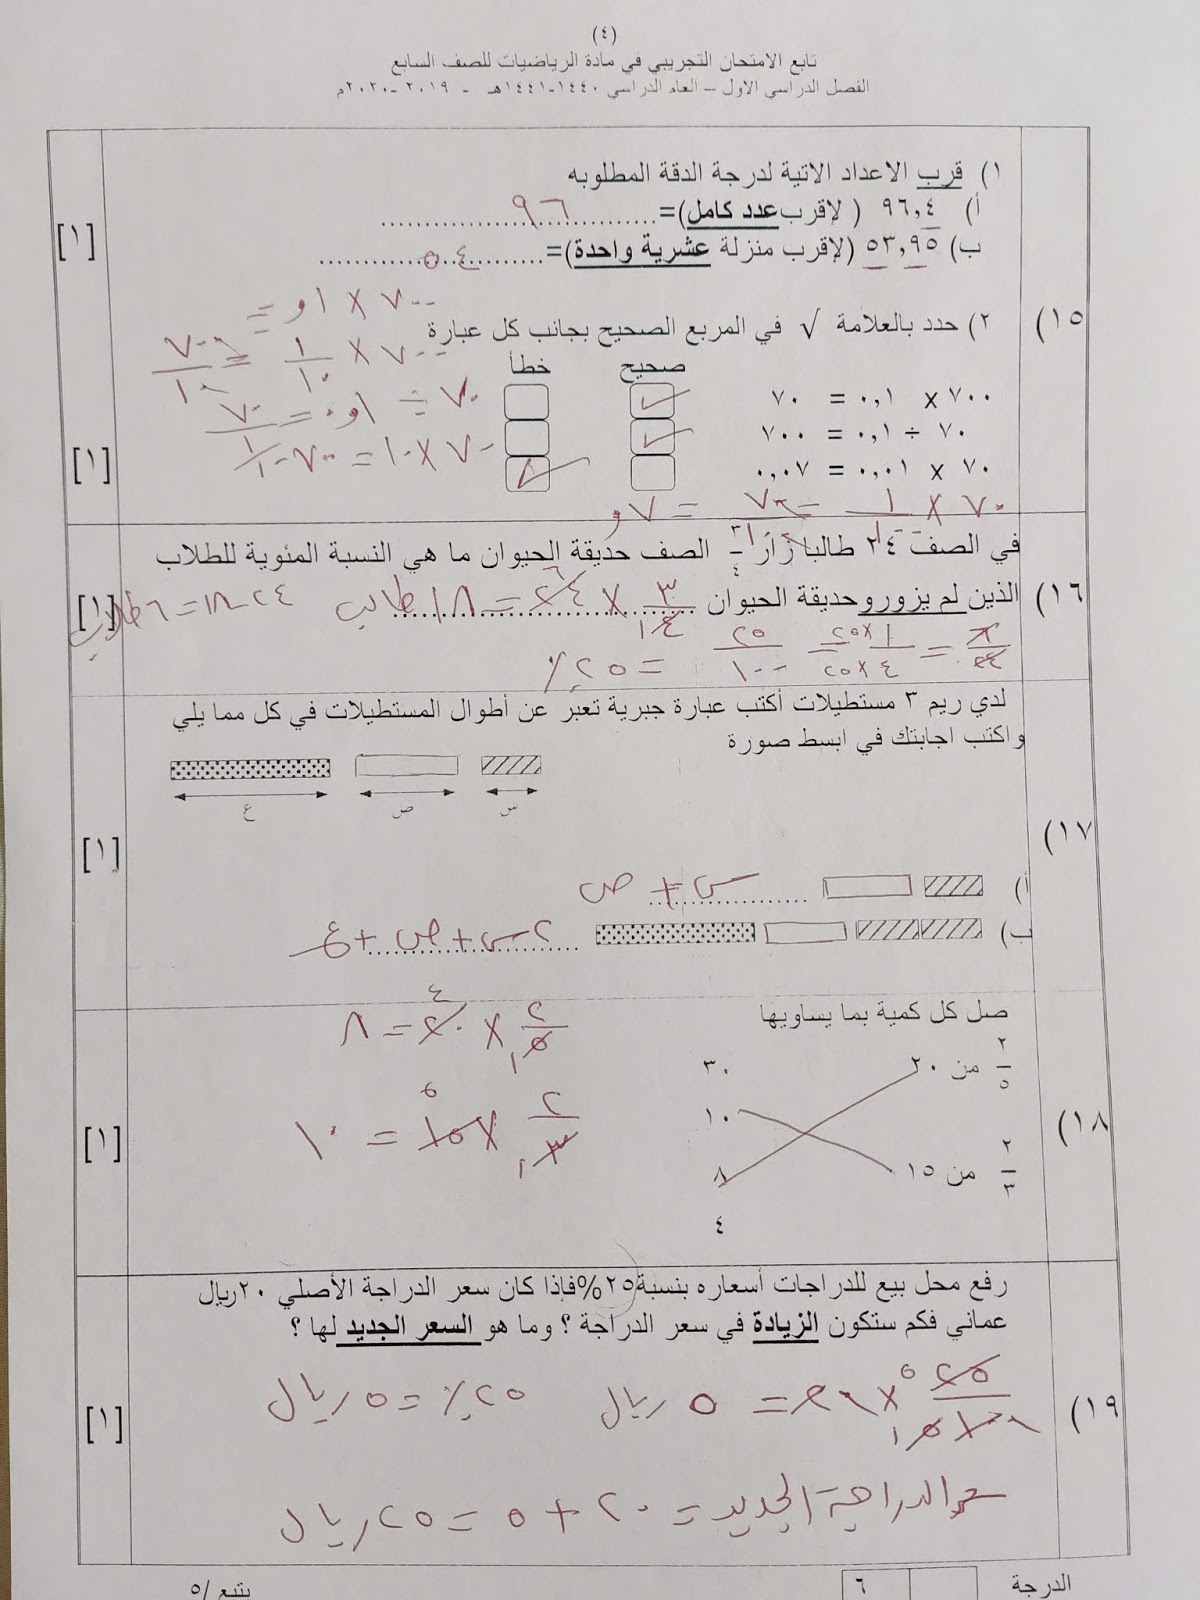 (٤)
تابع الامتحان التجريبي في مادة الرياضيات للصف السابع
الفصل الدراسي الاول – العام الدراسي ١٤٤٠-١٤٤١هـ - ٢٠١٩ -٢٠٢٠م
١) قرب الاعداد الاتية لدرجة الدقة المطلوبه
أ) ٩٦,٤ ( لإقرب عدد كامل)= ٩٦
[١]
ب) ٥٣,٩٥ (لإقرب منزلة عشرية واحدة)= ٥٤
١٥)
٧٠٠ × ٠,١ =
٢) حدد بالعلامة √ في المربع الصحيح بجانب كل عبارة
٧٠٠ × ١/١٠ = ٧٠٠/١٠
صحيح خطأ
٧٠٠ × ٠,١ = ٧٠ ✓
٧٠ ÷ ٠,١ =
٧٠ ÷ ٠,١ = ٧٠٠ ✓
٧٠ × ١٠ = ٧٠٠
[١]
٧٠ × ٠,٠١ = ٠,٠٧ ✓
٧٠ × ١/١٠٠ = ٧٠/١٠٠ = ٠,٧
١٦)
في الصف ٢٤ طالبا زار ٣/٤ الصف حديقة الحيوان ما هي النسبة المئوية للطلاب
الذين لم يزورو حديقة الحيوان ٣/٤ × ٢٤ = ١٨ طالب ٢٤ - ١٨ = ٦ طلاب
[١]
٦/٢٤ = ١×٢٥/٤×٢٥ = ٢٥/١٠٠ = ٢٥٪
لدي ريم ٣ مستطيلات أكتب عبارة جبرية تعبر عن أطوال المستطيلات في كل مما يلي
واكتب اجابتك في ابسط صورة
س ص ع
١٧)
[١]
أ) س + ص
ب) ٢س + ص + ع
صل كل كمية بما يساويها
٢/٥ × ٢٠ = ٨
٢/٥ من ٢٠ ٣٠
١٨)
١٠
٢/٣ × ١٥ = ١٠
[١]
٢/٣ من ١٥ ٨
٤
رفع محل بيع للدراجات أسعاره بنسبة ٢٥%فإذا كان سعر الدراجة الأصلي ٢٠ريال
عماني فكم ستكون الزيادة في سعر الدراجة ؟ وما هو السعر الجديد لها ؟
١٩)
٢٥/١٠٠ × ٢٠ = ٥ ريال ٢٥٪ = ٥ ريال
[١]
سعر الدراجة الجديد = ٢٠ + ٥ = ٢٥ ريال
الدرجة ٦ يتبع /٥